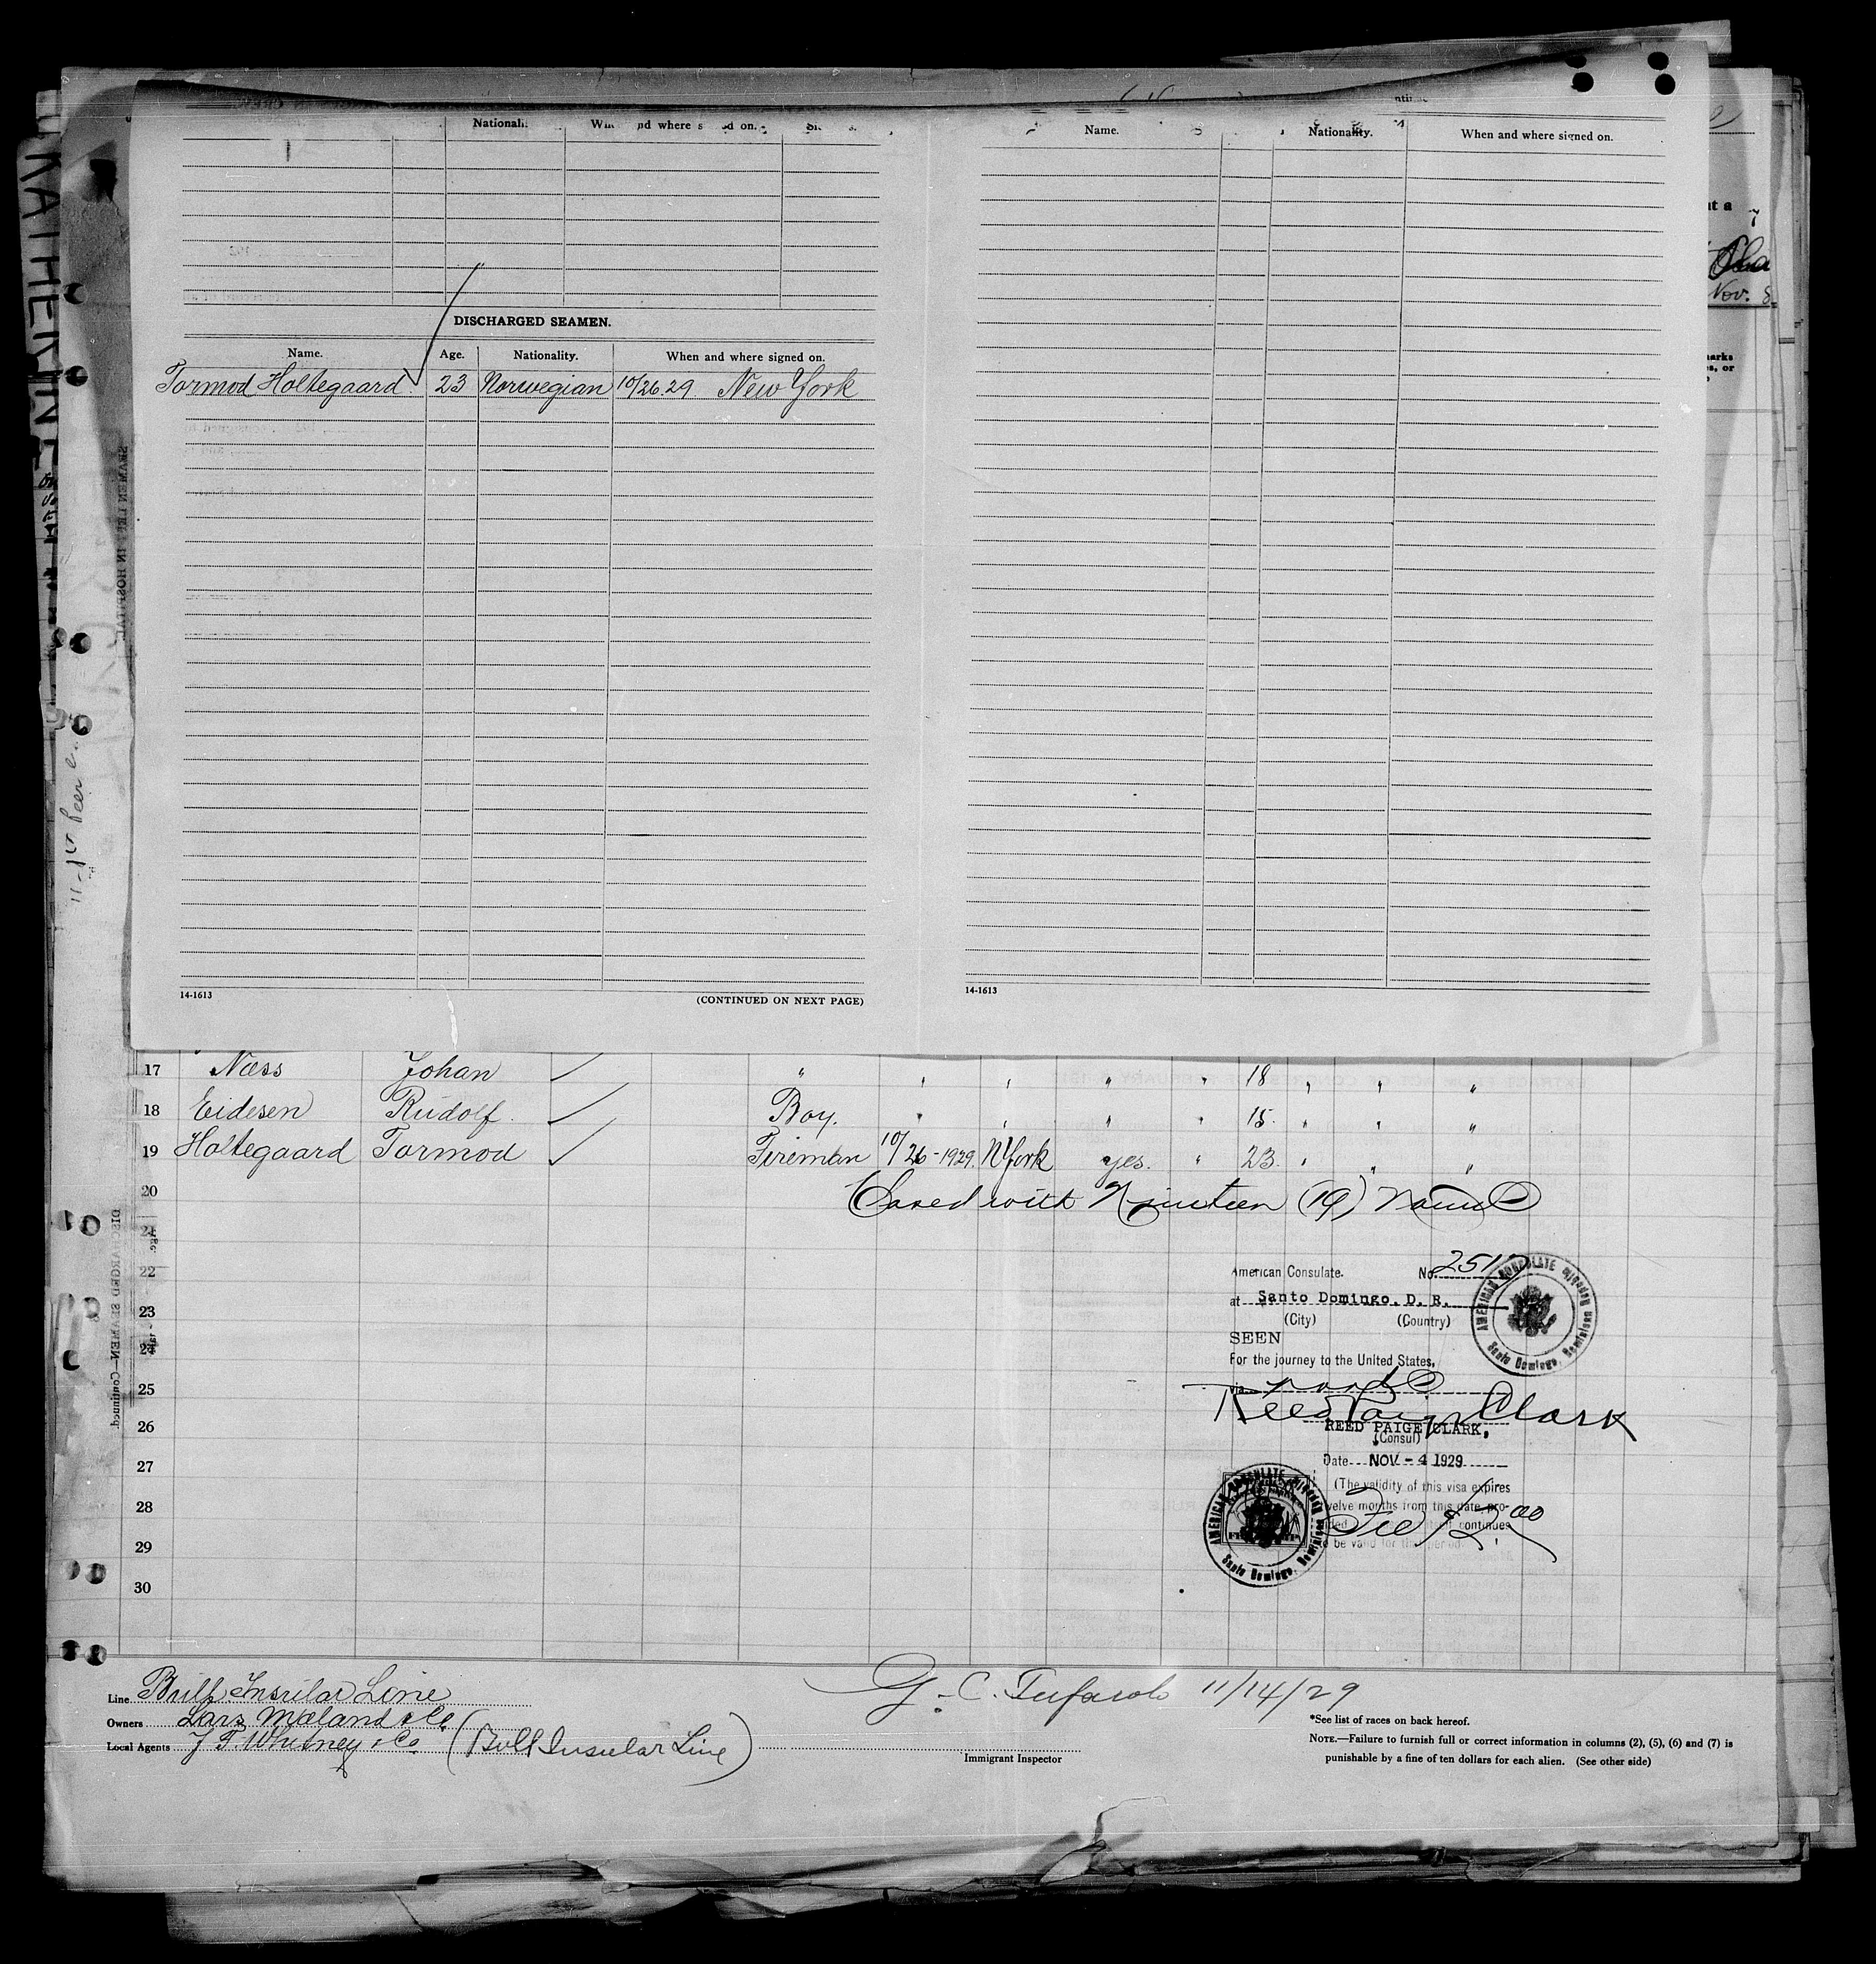 Name. Nationality. When and where signed on.
DISCHARGED SEAMEN.
Name. Age. Nationality. When and where signed on.
Tormod Holtegaard. 23 Norwegian 10/26.29. New York
14-1613 (CONTINUED ON NEXT PAGE) 14-1613
KATHERINE
Nov. 8
17 Næss Johan ✓ " " " " " 18 " " "
18 Eidesen Rudolf. ✓ Boy. " " " " 15. " " "
19 Holtegaard Tormod ✓ Fireman 10/26-1929. N York yes. " 23. " " "
20 Closed with Nineteen (19) Names
21
22
23
24
25
26
27
28
29
30
American Consulate. No.
at Santo Domingo, D. R.
(City) (Country)
SEEN
For the journey to the United States,
via
Reed Paige Clark
REED PAIGE CLARK,
(Consul)
Date NOV - 4 1929
(The validity of this visa expires
twelve months from this date, pro-
continues
be valid for the period.
Fee $2.00
AMERICAN CONSULATE
Santo Domingo, Dominican Republic
AMERICAN CONSULATE
Santo Domingo, Dominican Republic
Line Bull Insular Line
Owners Lars Mæland & Co.
Local Agents J F. Whitney & Co (Bull Insular Line)
G. C. 11/14/29
Immigrant Inspector
*See list of races on back hereof.
NOTE.—Failure to furnish full or correct information in columns (2), (5), (6) and (7) is
punishable by a fine of ten dollars for each alien. (See other side)